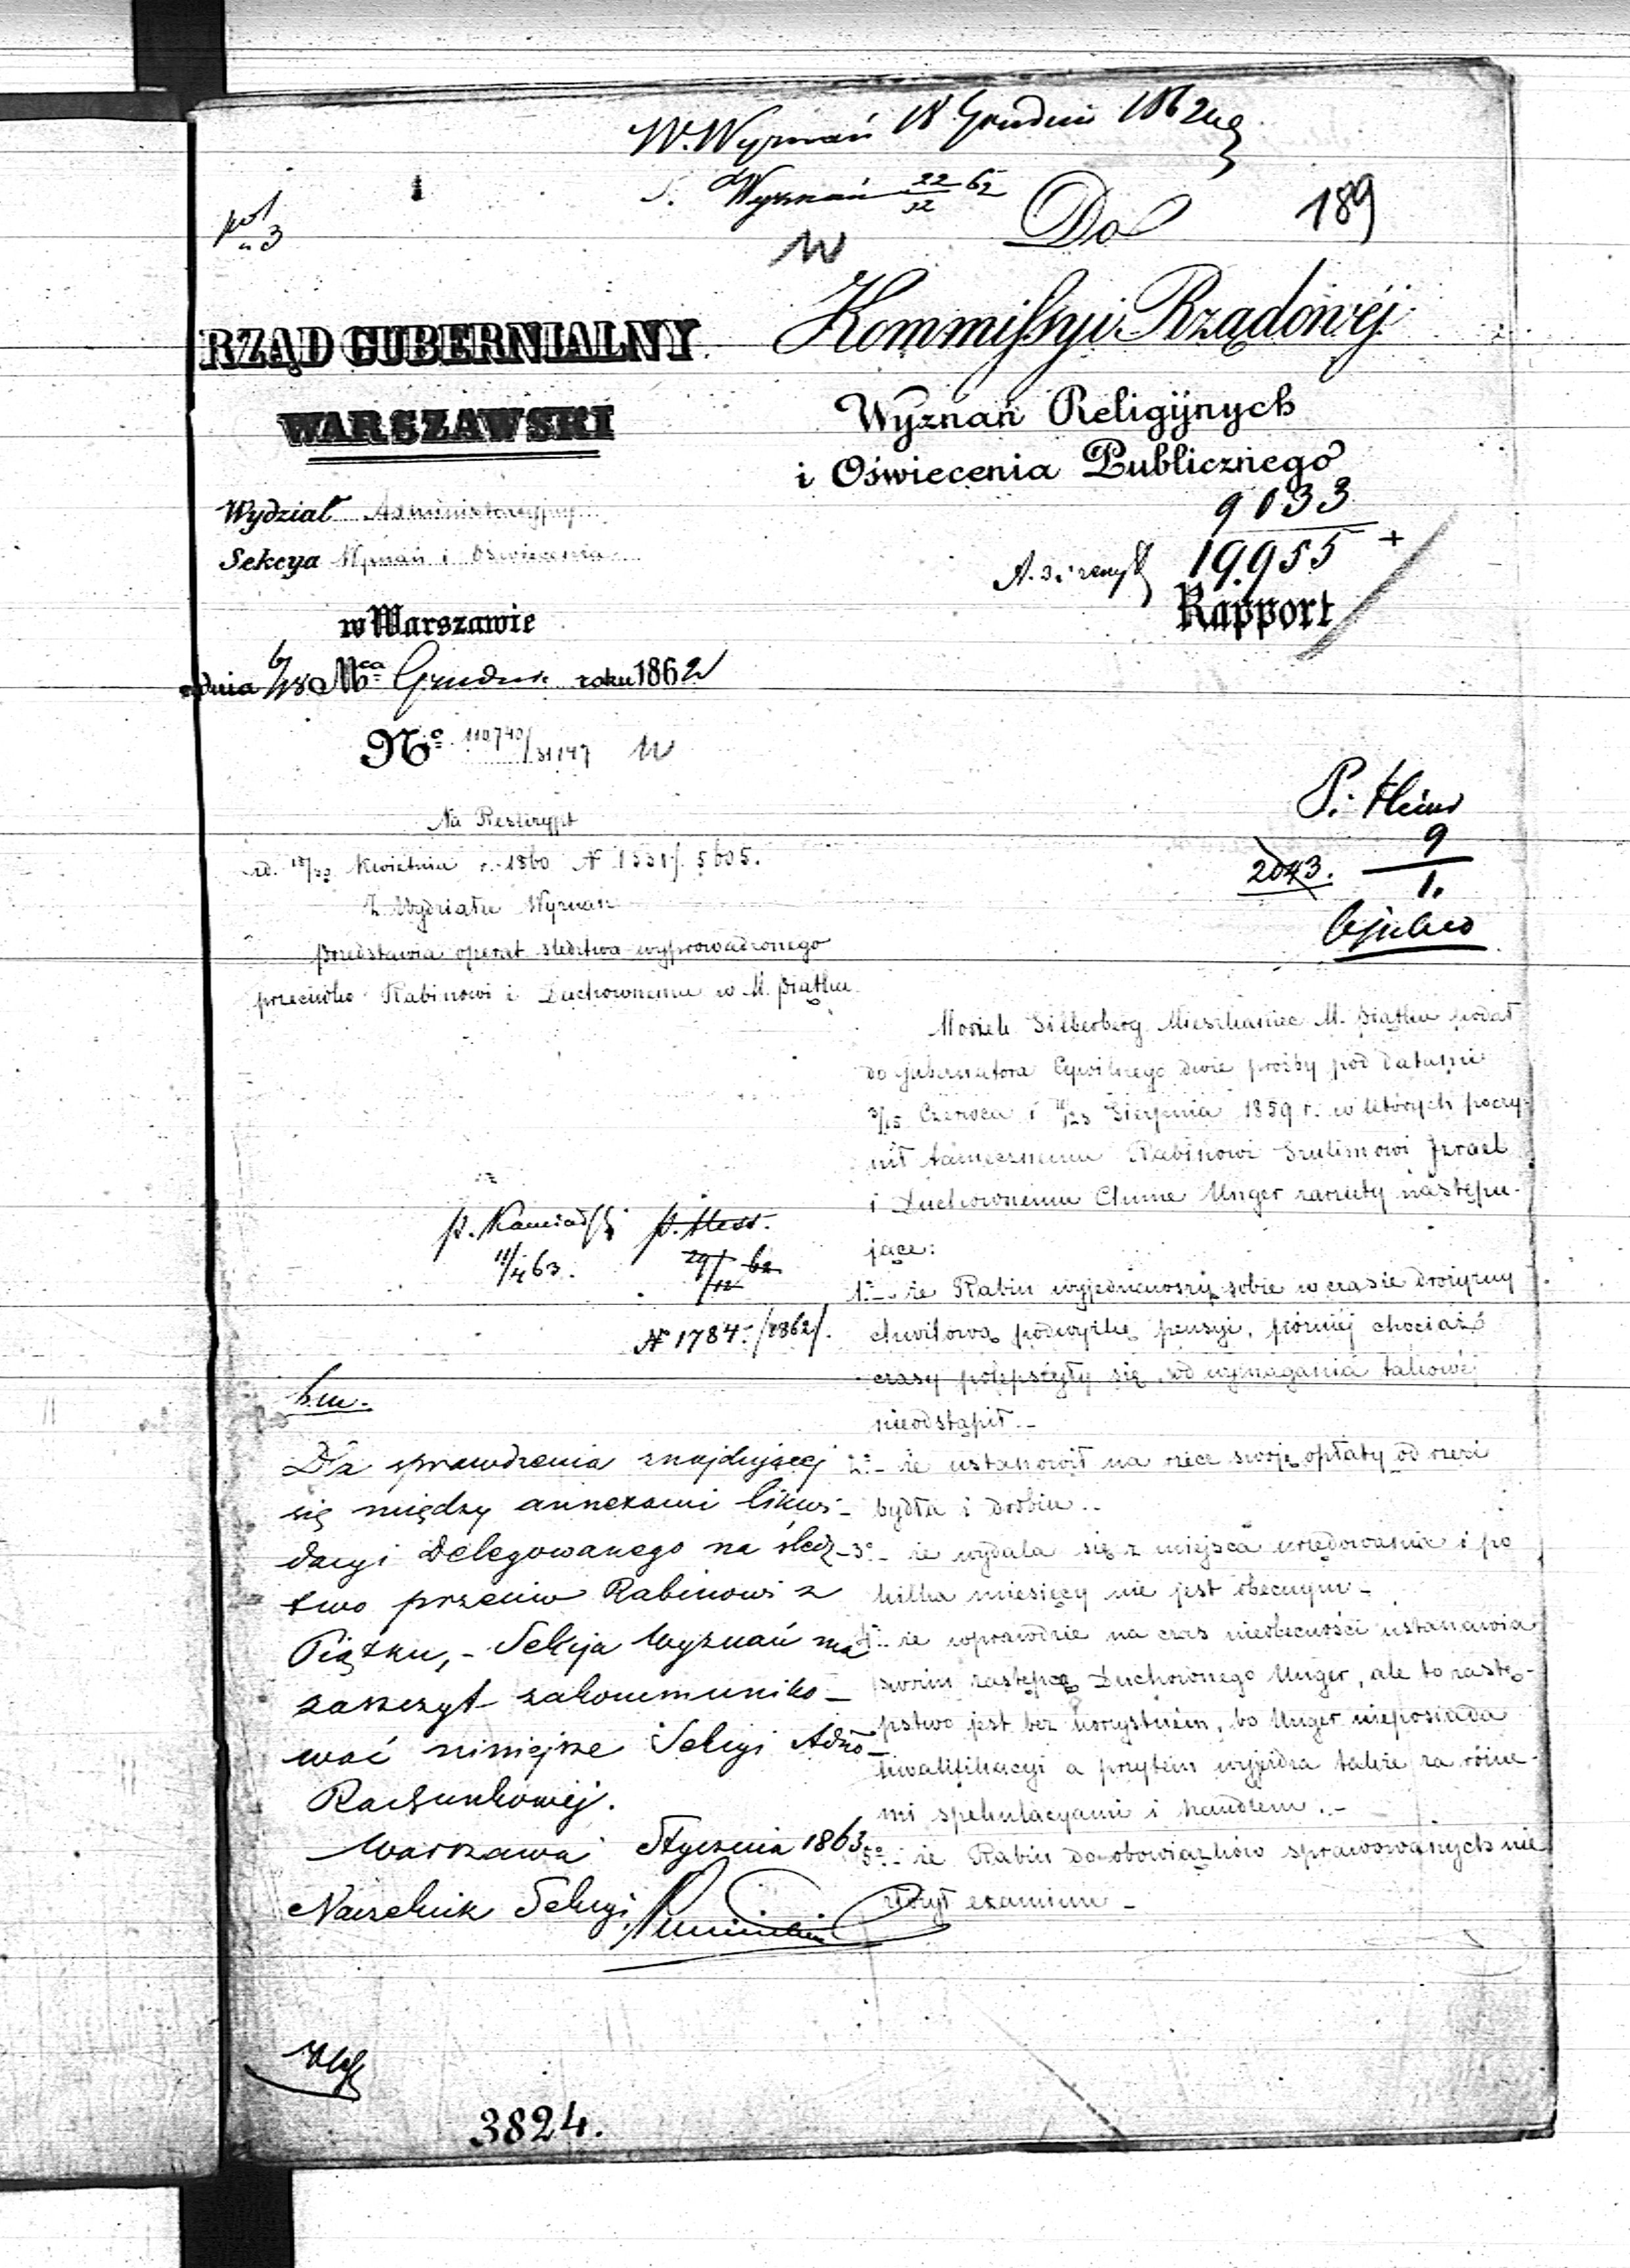 W. Wyznań 18 Grudnia 1862
Wyznań 22/12 62
189
Do
Kommissyi Rządowéj
Wyznań Religijnych
i Oświecenia Publicznego
9033
19955 +
Rapport
RZĄD GUBERNIALNY
WARSZAWSKI
Wydział Administracyjny
Sekcya Wyznań i Oświecenia
w Warszawie
dnia 6/18 Mca Grudnia roku 1862
No 110740/31147
Na Reskrypt
z d. 18/30 Kwietnia r. 1860 N 1331/5605.
Z Wydziału Wyznań
przedstawia operat śledztwa wyprowadzonego
przeciwko Rabinowi i Duchownemu w M. Piątku
9
2043.
1.
Moszek Silberberg Mieszkaniec M. Piątku podał
do Gubernatora Cywilnego dwie prośby pod datami
3/15 Czerwca i 11/23 Sierpnia 1859 r. w których poczy-
nił tamecznemu Rabinowi Szulimowi Izrael
i Duchownemu Chune Unger zarzuty następu-
jące:
1o - że Rabin wyjednawszy sobie w czasie drożyzny
chwilową podwyżkę pensyi, później chociaż
czasy polepszyły się, od wymagania takowéj
nieodstąpił. -
2o - że ustanowił na rzecz swoję opłaty od rzezi
bydła i drobiu. -
3o - że wydala się z miejsca urzędowania i po
kilka miesięcy nie jest obecnym -
4o - że wprawdzie na czas nieobecności ustanawia
swoim zastępcą Duchownego Unger, ale to zastę-
pstwo jest bez korzystném, bo Unger nieposiada
kwalifikacyi a przytém wyjeżdża także za różne-
mi spekulacyami i handlem. -
5o - że Rabin do obowiązków sprawowanych nie
złożył examinu -
11/1 63.
29/12 62
N 1784 /1862/.
b.m.
Dla sprawdzenia znajdującej
się między annexami likwi-
dacyi Delegowanego na śledz-
two przeciw Rabinowi z
Piątku, - Sekcja Wyznań ma
zaszczyt zakommuniko-
wać niniejsze Sekcyi Admo-
Rachunkowéj.
Warszawa Stycznia 1863
Naczelnik Sekcyi
3824.